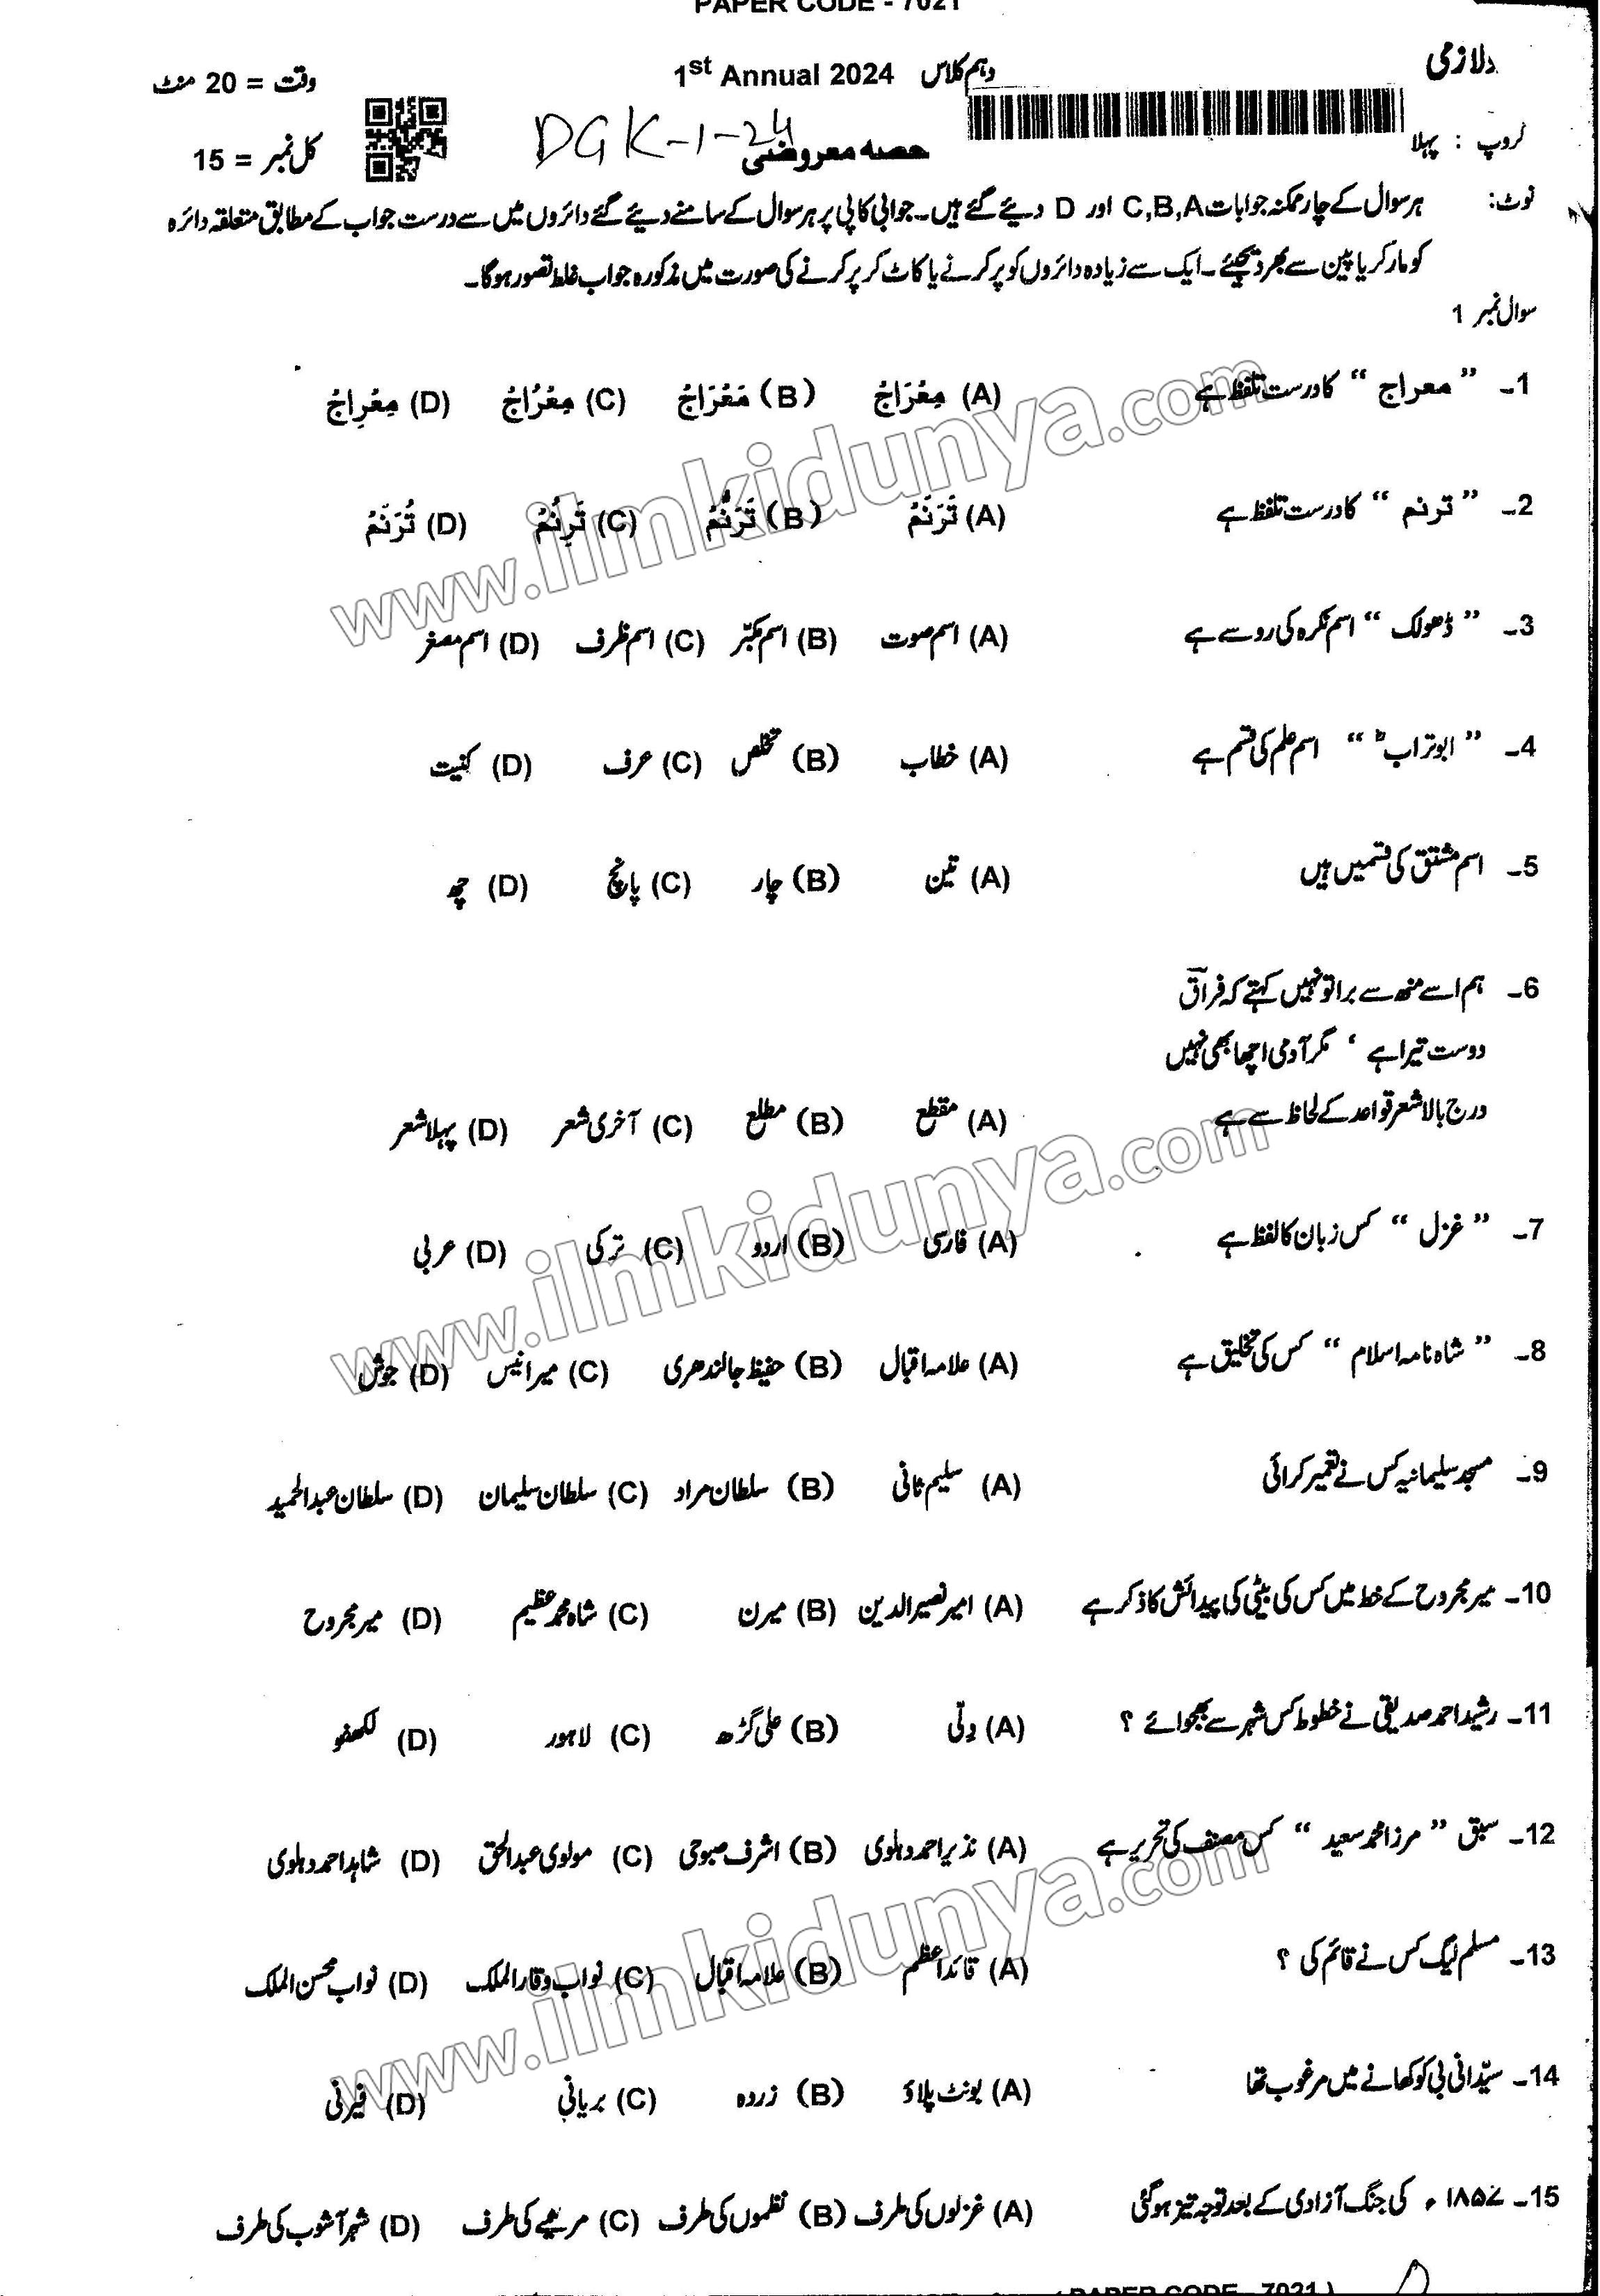 PAPER CODE - 7021
لازمی 1st Annual 2024 دہم کلاس وقت = 20 منٹ
گروپ : پہلا DGK-1-24 حصہ معروضی کل نمبر = 15
نوٹ: ہر سوال کے چار ممکنہ جوابات C,B,A اور D دیئے گئے ہیں۔ جوابی کاپی پر ہر سوال کے سامنے دیئے گئے دائروں میں سے درست جواب کے مطابق متعلقہ دائرہ
کو مارکر یا پین سے بھر دیجیئے۔ ایک سے زیادہ دائروں کو پر کرنے یا کاٹ کر پر کرنے کی صورت میں مذکورہ جواب غلط تصور ہوگا۔
سوال نمبر 1
1۔ ” معراج “ کا درست تلفظ ہے (A) مِعْرَاجْ (B) مَعْرَاجْ (C) مِعْرُاجْ (D) مِعْرِاجْ
2۔ ” ترنم “ کا درست تلفظ ہے (A) تَرَنَمْ (B) تَرَنُّمْ (C) تَرِنُمْ (D) تُرَنَمْ
3۔ ” ڈھولک “ اسم نکرہ کی رو سے ہے (A) اسم صوت (B) اسم مکبّر (C) اسم ظرف (D) اسم مصغر
4۔ ” ابوتراب ؓ “ اسم علم کی قسم ہے (A) خطاب (B) تخلص (C) عرف (D) کنیت
5۔ اسم مشتق کی قسمیں ہیں (A) تین (B) چار (C) پانچ (D) چھ
6۔ ہم اسے منھ سے برا تو نہیں کہتے کہ فراقؔ
دوست تیرا ہے ‘ مگر آدمی اچھا بھی نہیں
درج بالا شعر قواعد کے لحاظ سے ہے (A) مقطع (B) مطلع (C) آخری شعر (D) پہلا شعر
7۔ ” غزل “ کس زبان کا لفظ ہے (A) فارسی (B) اردو (C) ترکی (D) عربی
8۔ ” شاہ نامہ اسلام “ کس کی تخلیق ہے (A) علامہ اقبال (B) حفیظ جالندھری (C) میر انیس (D) جوش
9۔ مسجد سلیمانیہ کس نے تعمیر کرائی (A) سلیم ثانی (B) سلطان مراد (C) سلطان سلیمان (D) سلطان عبدالحمید
10۔ میر مجروح کے خط میں کس کی بیٹی کی پیدائش کا ذکر ہے (A) امیر نصیر الدین (B) میرن (C) شاہ محمد عظیم (D) میر مجروح
11۔ رشید احمد صدیقی نے خطوط کس شہر سے بھجوائے ؟ (A) دِلّی (B) علی گڑھ (C) لاہور (D) لکھنو
12۔ سبق ” مرزا محمد سعید “ کس مصنف کی تحریر ہے (A) نذیر احمد دہلوی (B) اشرف صبوحی (C) مولوی عبدالحق (D) شاہد احمد دہلوی
13۔ مسلم لیگ کس نے قائم کی ؟ (A) قائد اعظم (B) علامہ اقبال (C) نواب وقار الملک (D) نواب محسن الملک
14۔ سیّدانی بی کو کھانے میں مرغوب تھا (A) بونٹ پلاؤ (B) زردہ (C) بریانی (D) فیرنی
15۔ ۱۸۵۷ء کی جنگ آزادی کے بعد توجہ تیز ہوگئی (A) غزلوں کی طرف (B) نظموں کی طرف (C) مرثیے کی طرف (D) شہر آشوب کی طرف
( PAPER CODE - 7021 )
www.ilmkidunya.com
www.ilmkidunya.com
www.ilmkidunya.com